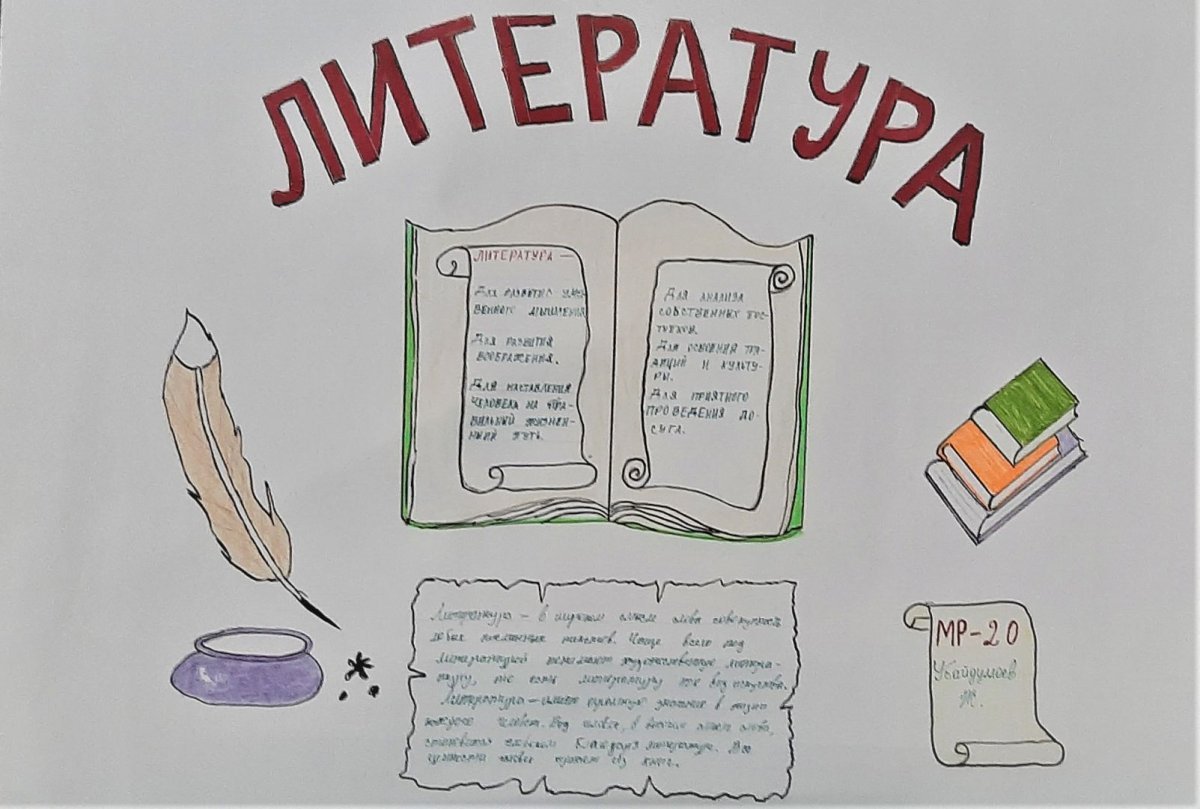 ЛИТЕРАТУРА
ЛИТЕРАТУРА —
Для развития умс-
венного мышления
Для развития
воображения.
Для наставления
человека на пра-
вильный жизнен-
ный путь.
Для анализа
собственных пос-
тупков.
Для освоения тра-
диций и культу-
ры.
Для приятного
проведения до-
суга.
Литература – в широком смысле слова совокупность
любых письменных текстов. Чаще всего под
литературой понимают художественную литера-
туру, то есть литературу как вид искусства.
Литература – имеет огромное значение в жизни
каждого человека. Ведь человек, в полном смысле слова,
становится человеком благодаря литературе. Все
ценности человек черпает из книг.
МР-20
Убайдуллоев
Ж.